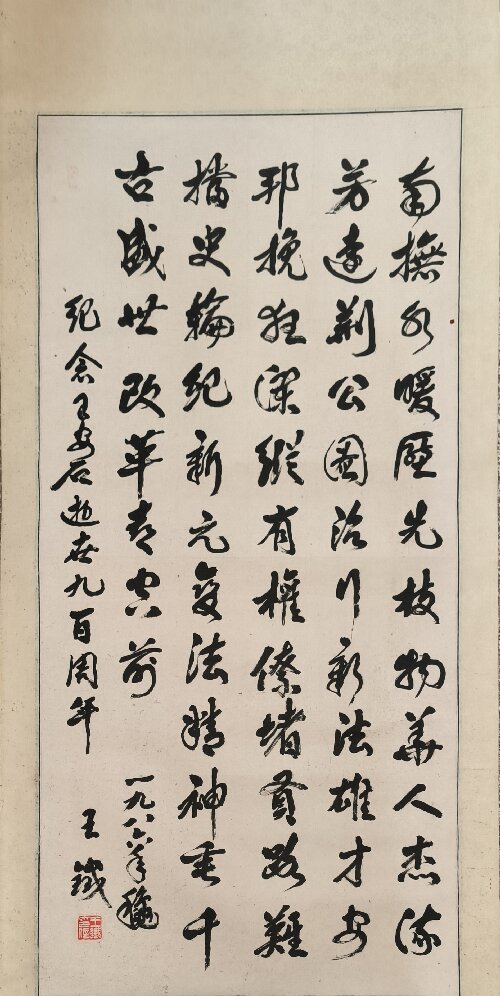 南撫水暖歷先枝物華人杰流
芳遠荆公圖治行新法雄才安
邦挽狂瀾縱有權僚堵賢路難
擋史輪紀新元變法精神垂千
古盛世改革喜空前
紀念王安石逝世九百周年
一九八六年穐
王鐵